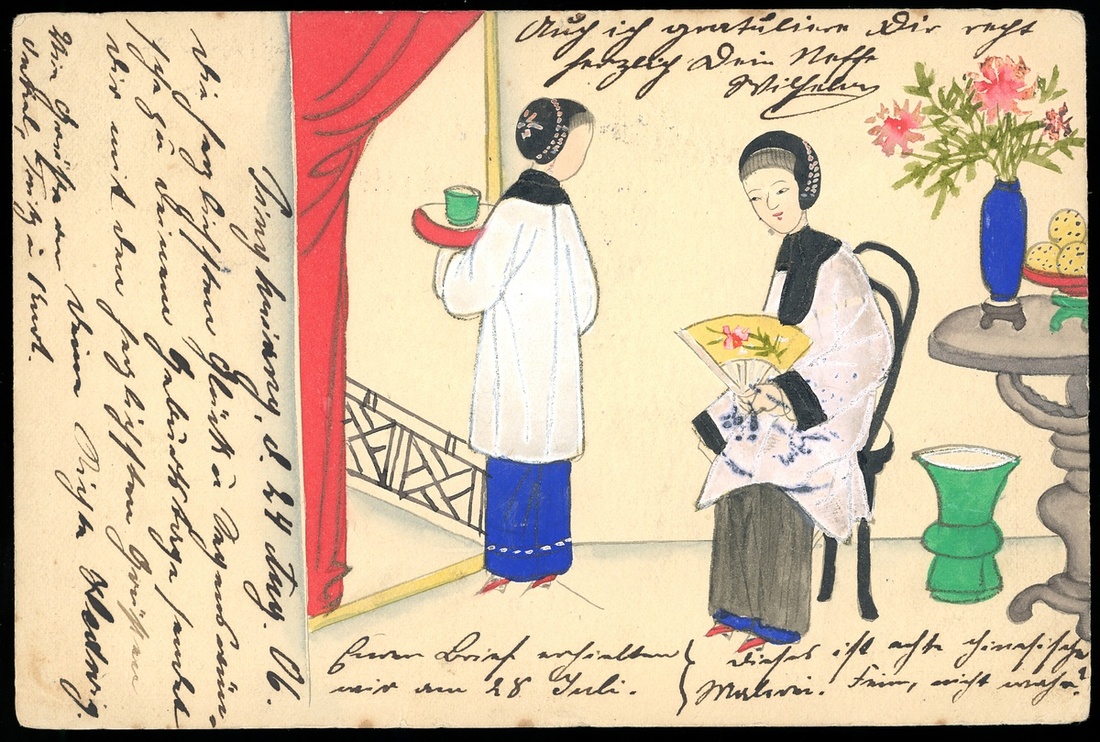 Auch ich gratuliere Dir recht
herzlich Dein Neffe
Wilhelm
d. 24 Aug. 06.
Die herzlichsten Glück u Segenswün-
sche zu Deinem Geburtstage sendet
Dir mit den herzlichsten Grüßen
Deine Nichte Hedwig.
Grüße an
Onkel, Fritz u Kurt.
Euren Brief erhielten
wir am 28 Juli.
Dieses ist echte chinesische
Malerei. Fein, nicht wahr?